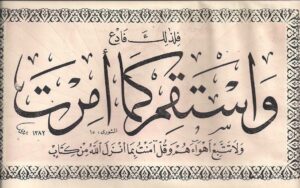 فلذلك فادع
واستقم كما أمرت
الشورى ١٥
ولا تتبع أهواءهم وقل آمنت بما أنزل الله من كتاب
١٣٨٢